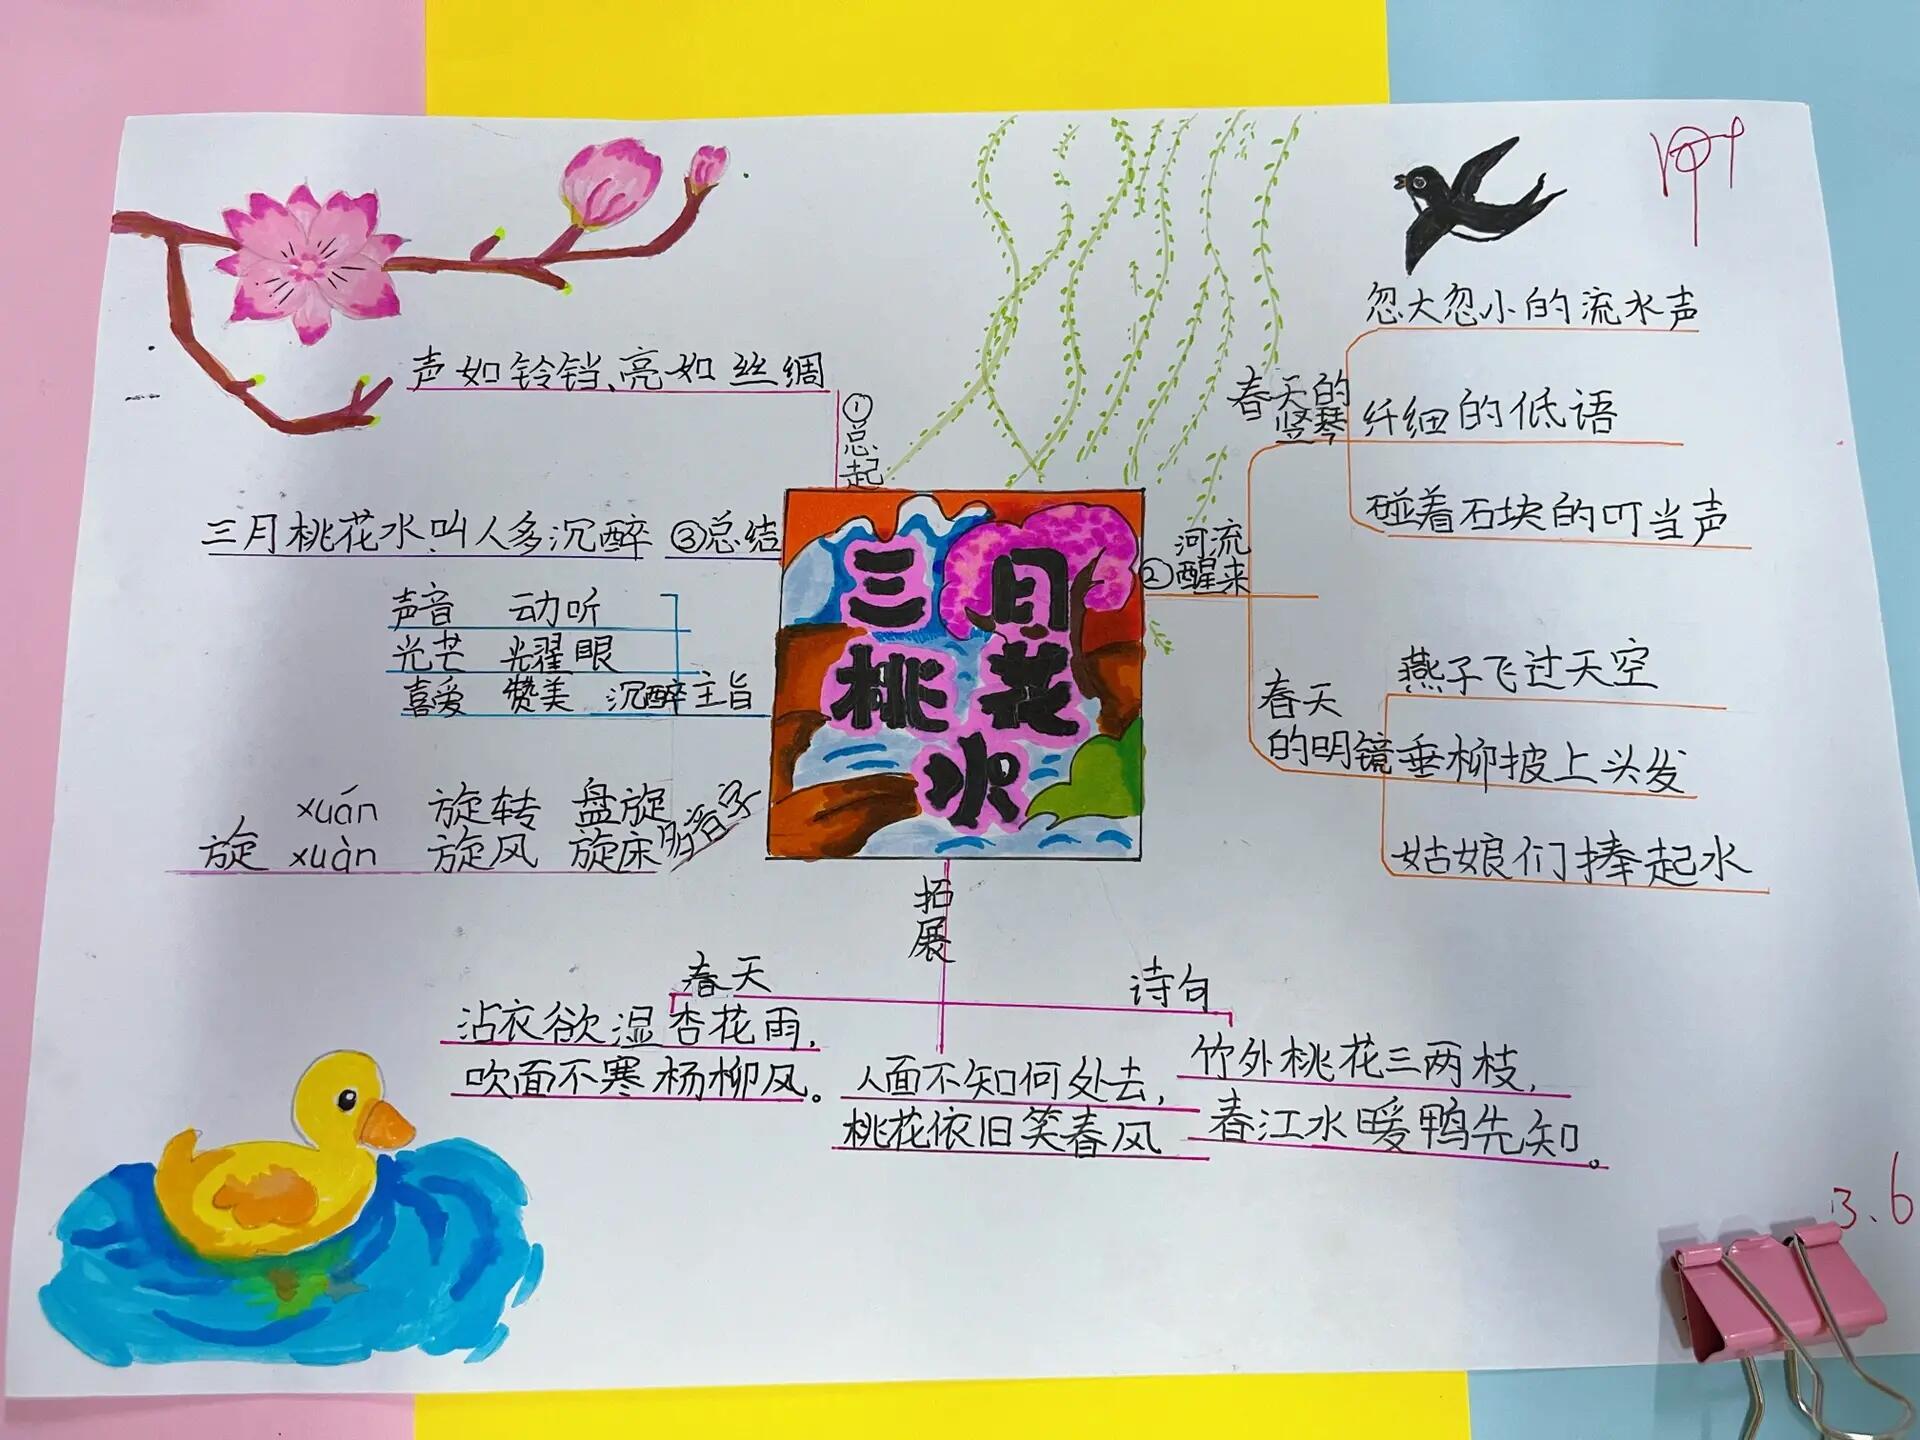 声如铃铛、亮如丝绸
①总起
三月桃花水叫人多沉醉 ③总结
声音 动听
光芒 光耀眼
喜爱 赞美 沉醉 主旨
旋 xuán 旋转 盘旋
xuàn 旋风 旋床
多音字
三月
桃花
水
②河流
醒来
春天的
竖琴
忽大忽小的流水声
纤细的低语
碰着石块的叮当声
春天
的明镜
燕子飞过天空
垂柳披上头发
姑娘们捧起水
拓展
春天
诗句
沾衣欲湿杏花雨,
吹面不寒杨柳风。
人面不知何处去,
桃花依旧笑春风
竹外桃花三两枝,
春江水暖鸭先知。
3.6